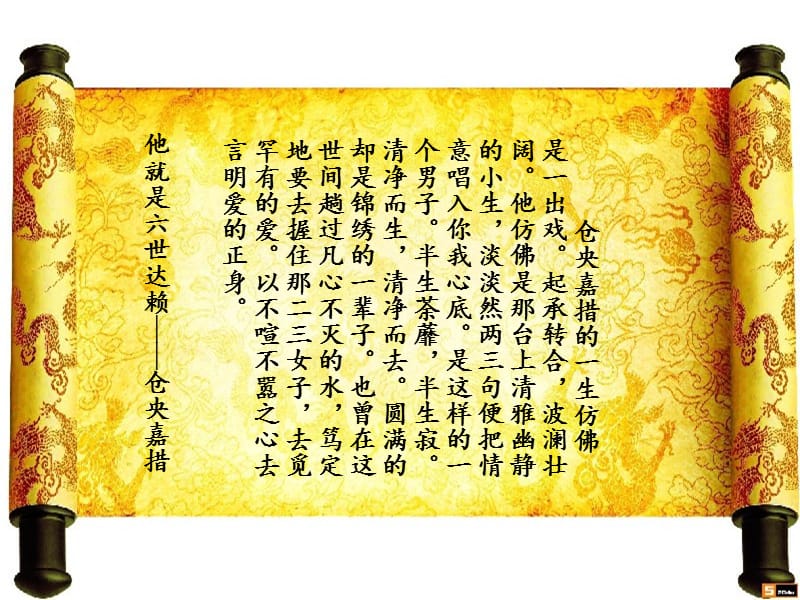 仓央嘉措的一生仿佛
是一出戏。起承转合，波澜壮
阔。他仿佛是那台上清雅幽静
的小生，淡淡然两三句便把情
意唱入你我心底。是这样的一
个男子。半生荼蘼，半生寂。
清净而生，清净而去。圆满的
却是锦绣的一辈子。也曾在这
世间趟过凡心不灭的水，笃定
地要去握住那二三女子，去觅
罕有的爱。以不喧不嚣之心去
言明爱的正身。
他就是六世达赖——仓央嘉措